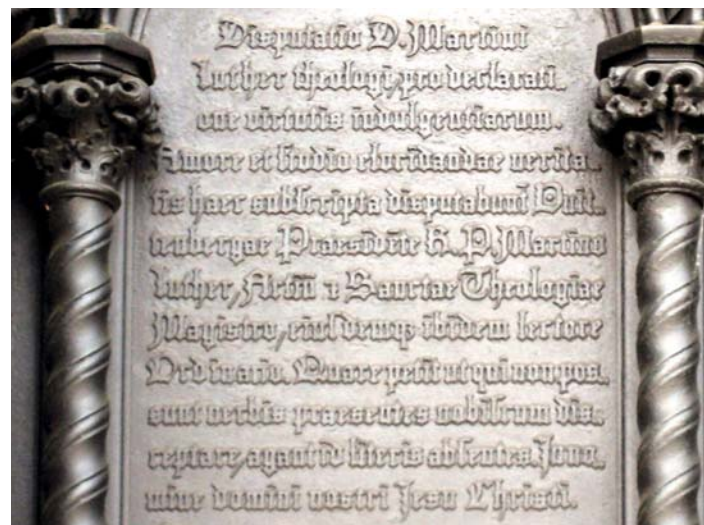 Disputatio D. Martini
Luther theologi, pro declarati-
one virtutis indulgentiarum.
Amore et studio elucidandae verita-
tis haec subscripta disputabunt Vuit-
tenbergae Praesidēte R. P. Martino
Luther, Artiū ⁊ Sanctae Theologiae
Magistro, eiusdemqꝫ ibidem lectore
Ordinario. Quare petit ut qui non pos-
sunt verbis praesentes nobiscum dis-
ceptare, agant id literis absentes. In no-
mine domini nostri Jesu Christi.